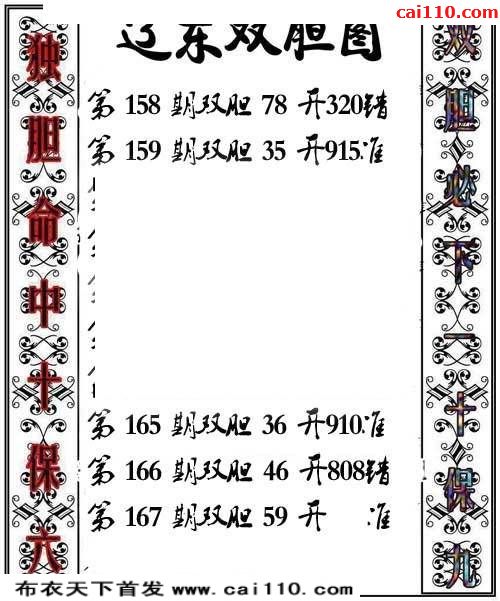 cai110.com
辽东双胆图
独胆命中十保六
第 158 期双胆 78 开320错
第 159 期双胆 35 开915准
第 165 期双胆 36 开910准
第 166 期双胆 46 开808错
第 167 期双胆 59 开 准
双胆必下一十保九
布衣天下首发 www.cai110.com